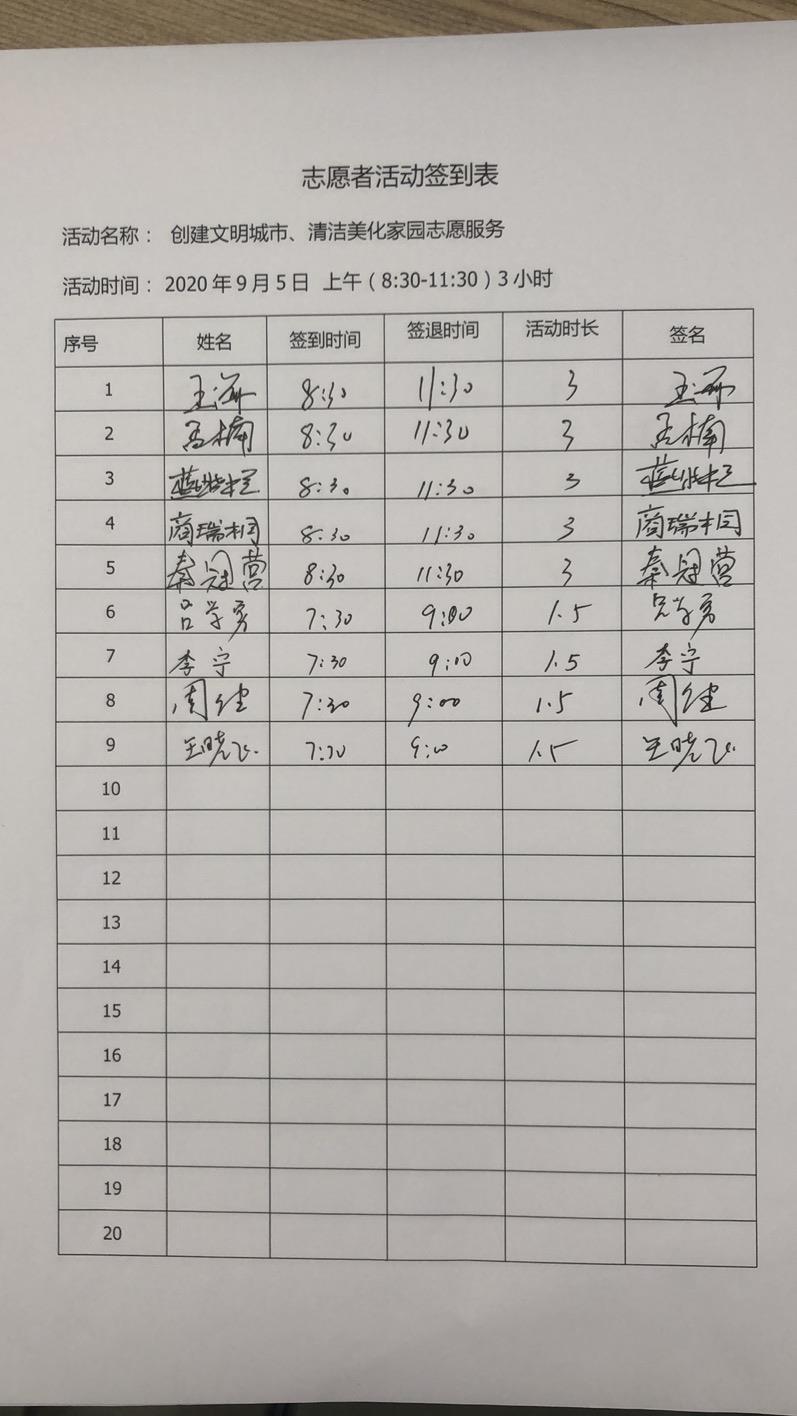 志愿者活动签到表
活动名称： 创建文明城市、清洁美化家园志愿服务
活动时间：2020年9月5日 上午（8:30-11:30）3小时
序号 姓名 签到时间 签退时间 活动时长 签名
1 8:30 11:30 3
2 8:30 11:30 3
3 8:30 11:30 3
4 商瑞相 8:30 11:30 3 商瑞相
5 秦冠营 8:30 11:30 3 秦冠营
6 吕学勇 7:30 9:00 1.5 吕学勇
7 李宁 7:30 9:00 1.5 李宁
8 周健 7:30 9:00 1.5 周健
9 王晓飞 7:30 9:00 1.5 王晓飞
10
11
12
13
14
15
16
17
18
19
20